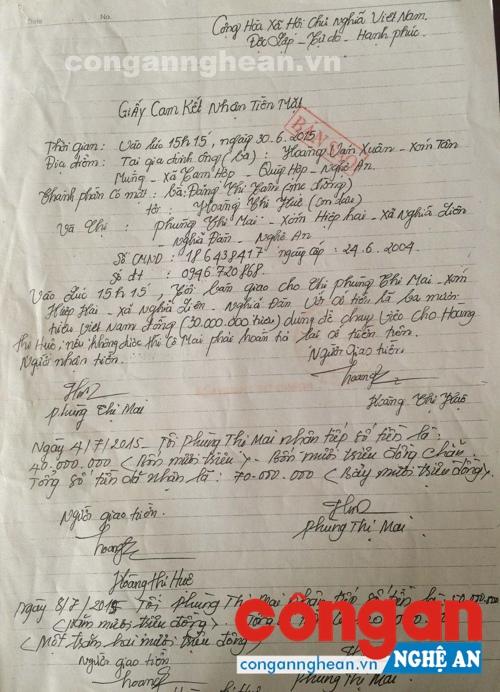 Date No.
Cộng Hòa Xã Hội Chủ Nghĩa Việt Nam.
Độc Lập - Tự do - Hạnh phúc.
congannghean.vn
Giấy Cam Kết Nhận Tiền Mặt
BẢN
Thời gian: Vào lúc 15h15', ngày 30.6.2015
Địa điểm: Tại gia đình ông (bà): Hoàng Văn Xuân - Xóm Tân
Mùng - Xã Tam Hợp - Quỳ Hợp - Nghệ An.
Thành phần có mặt: bà: Đặng Thị Tám (mẹ chồng)
tôi: Hoàng Thị Huê (con dâu)
Và Chị: Phùng Thị Mai - Xóm Hiệp hai - xã Nghĩa Liên
- Nghĩa Đàn - Nghệ An
Số CMND: 186438417 ngày cấp: 24.6.2004.
Số đt: 0946.720868.
Vào Lúc 15h15', Tôi bàn giao cho Chị Phùng Thị Mai - Xóm
Hiệp Hai - xã Nghĩa Liên - Nghĩa Đàn Với số tiền là ba mươi
triệu Việt Nam đồng (30.000.000 triệu) dùng để chạy việc cho Hoàng
Thị Huê, nếu không được thì cô Mai phải hoàn trả lại số tiền trên.
Người nhận tiền. Người giao tiền
Phùng Thị Mai Hoàng Thị Huê
Ngày 4/7/2015 Tôi Phùng Thị Mai nhận tiếp số tiền là:
40.000.000 (Bốn mươi triệu) - Bốn mươi triệu đồng chẵn.
Tổng số tiền đã nhận là: 70.000.000 (Bảy mươi triệu đồng)
Người giao tiền.
Phùng Thị Mai
Hoàng Thị Huê
ngày 8/7/2015 Tôi Phùng Thị Mai nhận tiếp số tiền là
(Năm mươi triệu đồng). Tổng
(Một trăm hai mươi triệu đồng)
Người giao tiền
Phùng Thị Mai
congan
congannghean.vn NGHỆ AN